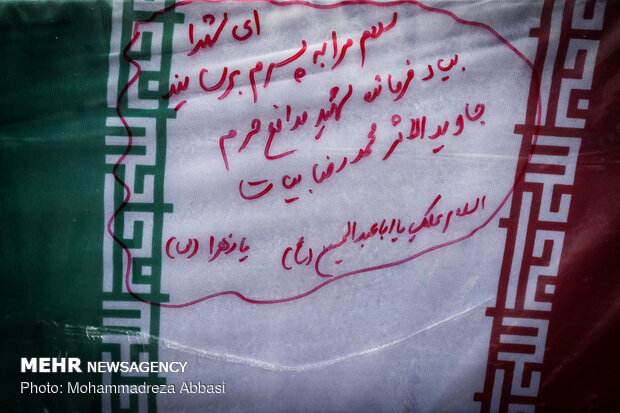 ای شهدا
سلام مرا به پسرم برسانید
بیاد فرمانده شهید مدافع حرم
جاوید الاثر محمدرضا بیات
السلام علیک یا اباعبدالحسین (ع)
یا زهرا (س)
MEHR NEWSAGENCY
Photo: Mohammadreza Abbasi